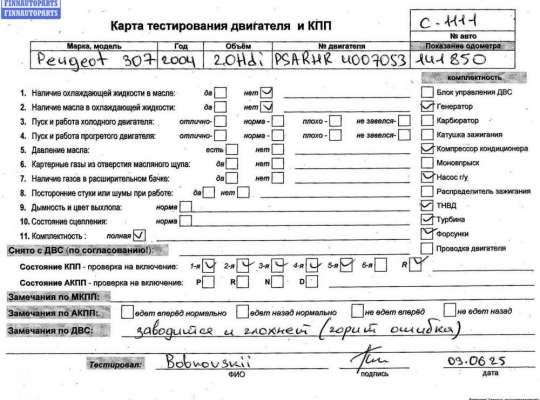 FINNAUTOPARTS
FINNAUTOPARTS
Карта тестирования двигателя и КПП
С-1111
№ авто
Марка, модель Год Объём № двигателя Показание одометра
Peugeot 307 2004 2.0Hdi PSARHR 4007053 141850
комплектность
1. Наличие охлаждающей жидкости в масле: да нет
2. Наличие масла в охлаждающей жидкости: да нет
3. Пуск и работа холодного двигателя: отлично- норма - плохо - не завелся-
4. Пуск и работа прогретого двигателя: отлично- норма - плохо - не завелся-
5. Давление масла: есть нет
6. Картерные газы из отверстия масляного щупа: да нет
7. Наличие газов в расширительном бачке: да нет
8. Посторонние стуки или шумы при работе: да нет
9. Дымность и цвет выхлопа: норма
10. Состояние сцепления: норма
11. Комплектность : полная
Блок управления ДВС
Генератор
Карбюратор
Катушка зажигания
Компрессор кондиционера
Моновпрыск
Насос г/у
Распределитель зажигания
ТНВД
Турбина
Форсунки
Проводка двигателя
Снято с ДВС (по согласованию!):
Состояние КПП - проверка на включение: 1-я 2-я 3-я 4-я 5-я 6-я R
Состояние АКПП - проверка на включение: P R N D
Замечания по МКПП:
Замечания по АКПП: едет вперёд нормально едет назад нормально не едет вперёд не едет назад
Замечания по ДВС: заводится и глохнет (горит ошибка)
Тестировал: Bobrovskii 09.06.25
ФИО подпись дата